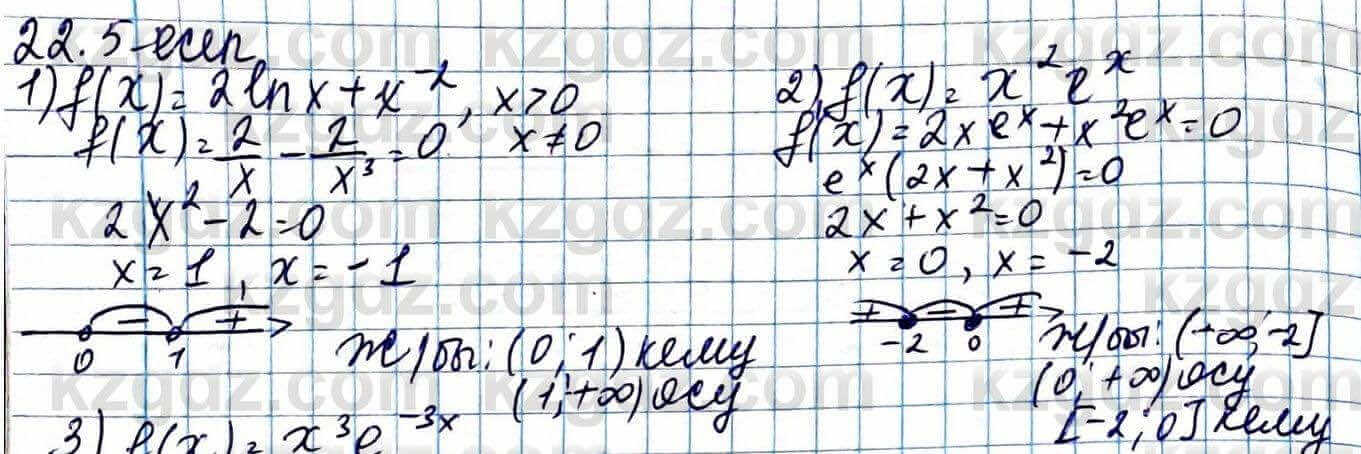 22.5-есеп
1) f(x) = 2lnx + x⁻², x>0
f'(x) = 2/x - 2/x³ = 0 x≠0
2x² - 2 = 0
x = 1, x = -1
- +
0 1
Ж/бы: (0; 1) кему
(1; +∞) өсу
2) f(x) = x²eˣ
f'(x) = 2xeˣ + x²eˣ = 0
eˣ(2x + x²) = 0
2x + x² = 0
x = 0, x = -2
+ - +
-2 0
Ж/бы: (-∞; -2]
(0; +∞) өсу
[-2; 0] кему
3) f(x) = x³e⁻³ˣ
kzgdz.com